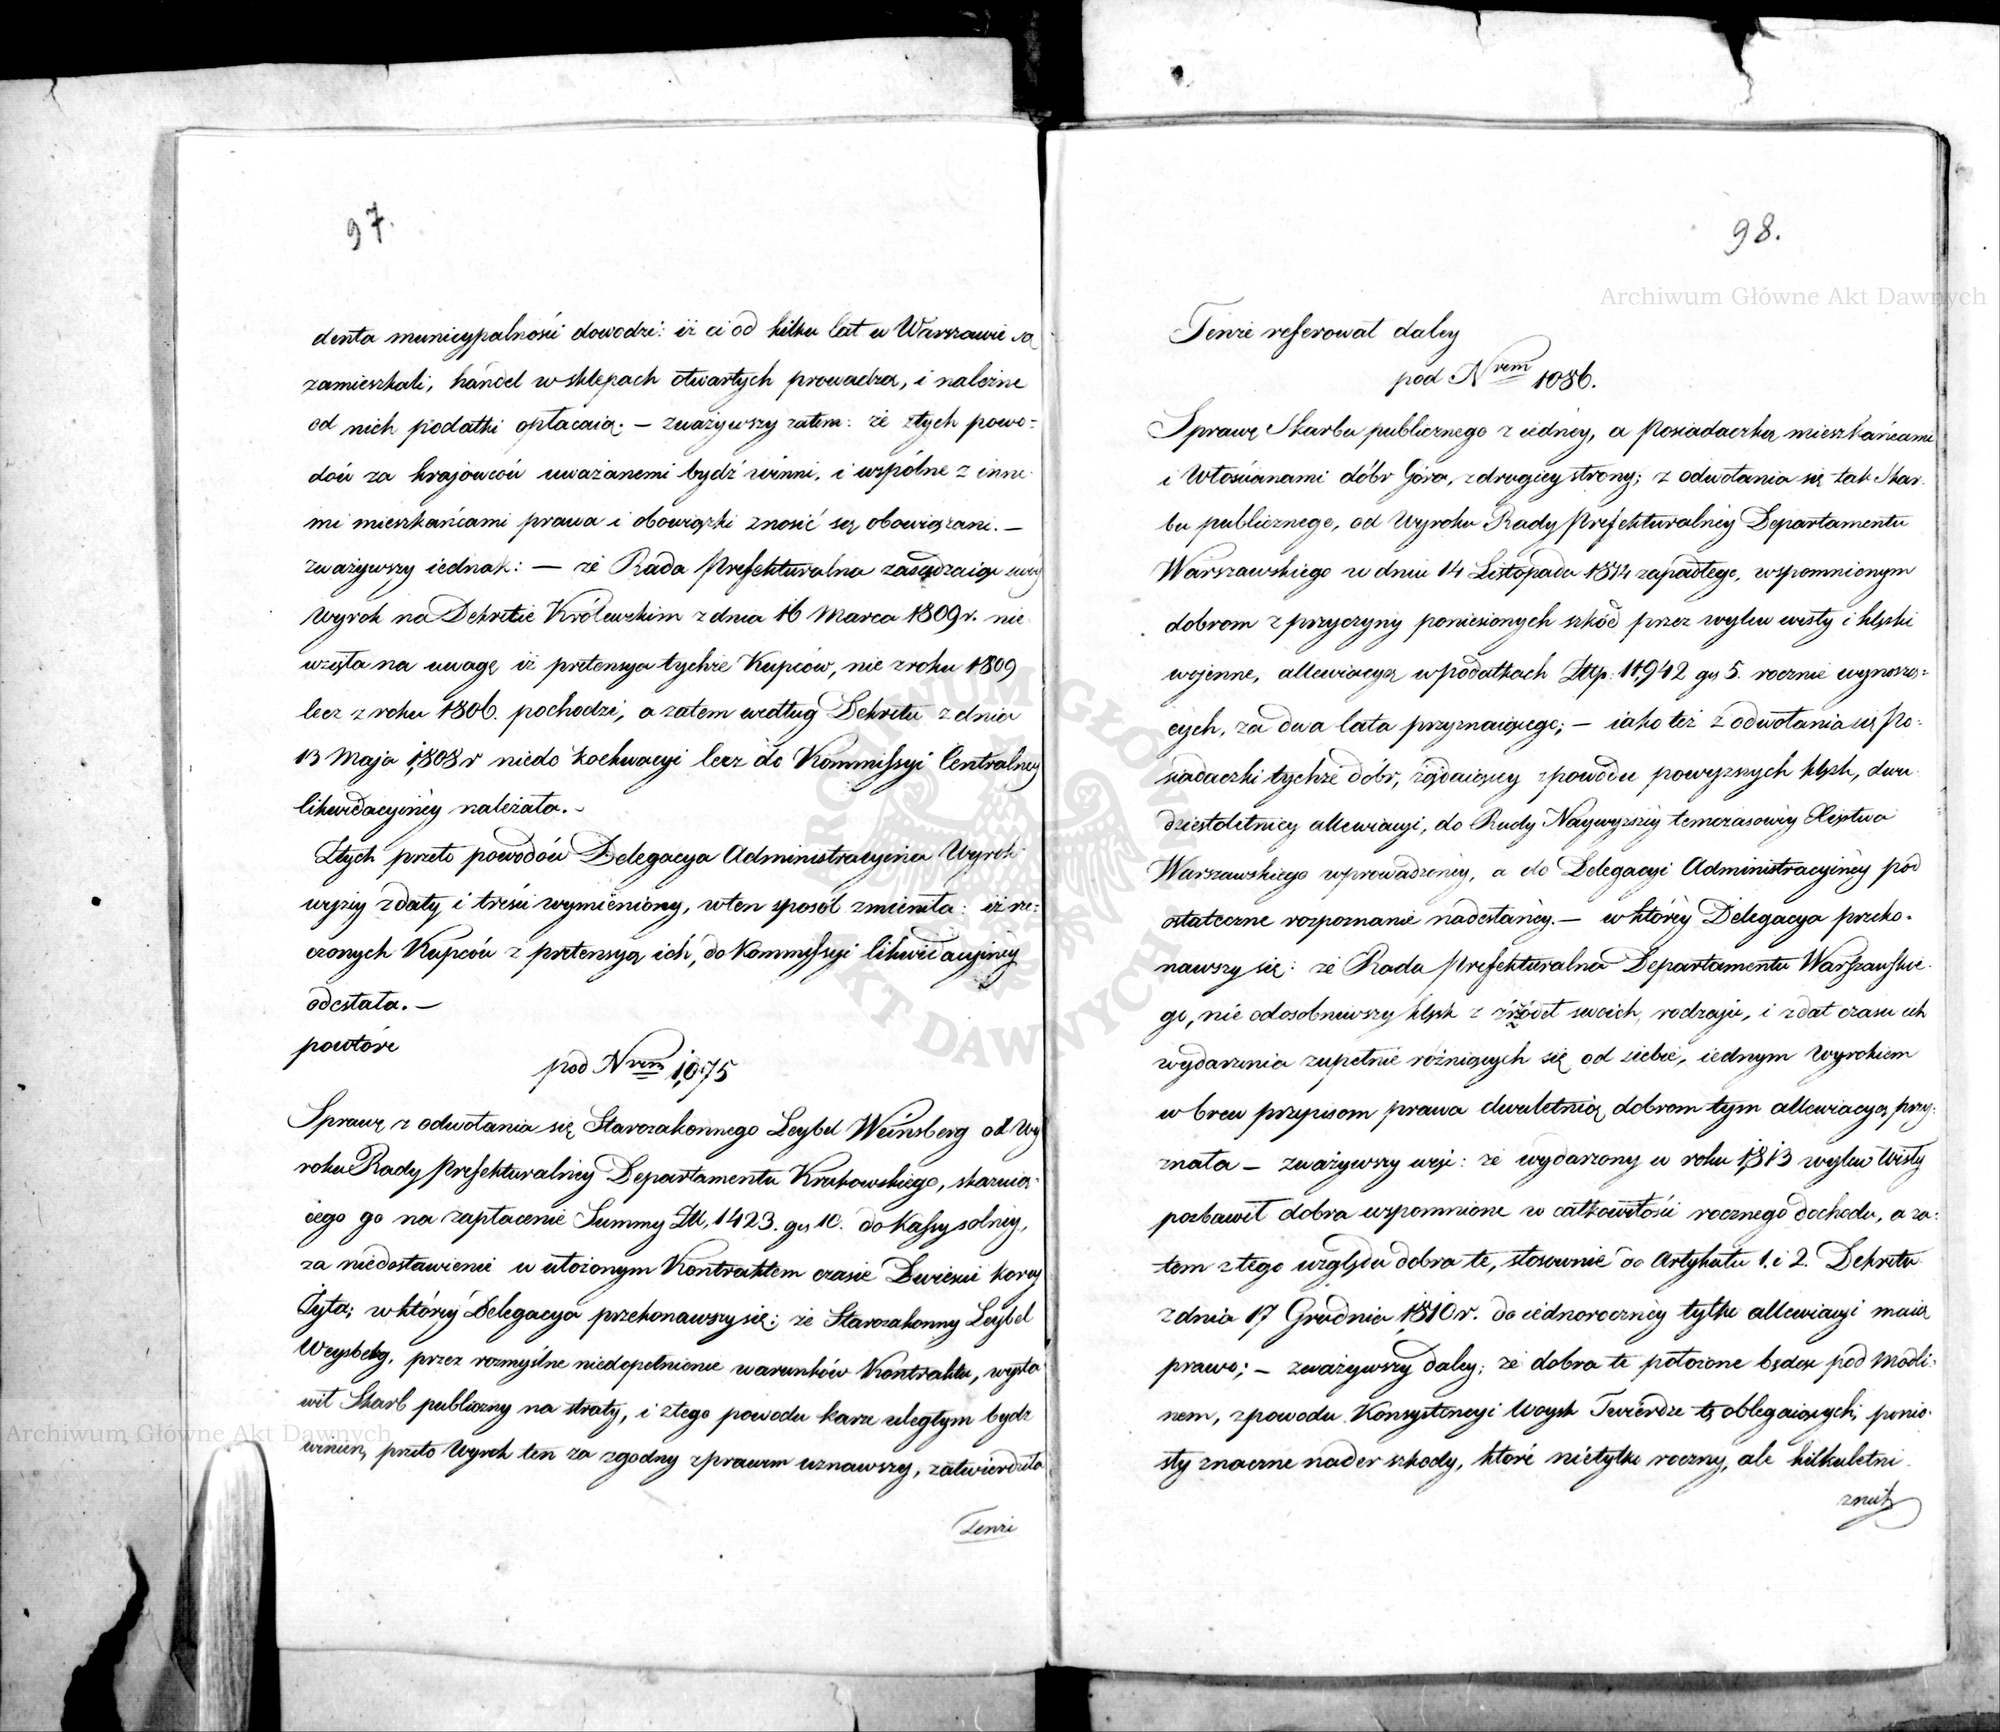 97.
denta municypalności dowodzi: iż ci od kilku lat w Warszawie są
zamieszkali, handel w sklepach otwartych prowadzą, i należne
od nich podatki opłacaią. — zważywszy zatem: że ztych powo=
dów za kraiowców uważanemi bydź winni, i wspólne z inne
mi mieszkańcami prawa i obowiązki znosić są obowiązani. —
zważywszy iednak: — że Rada Prefekturalna zasądzaiąc swóy
Wyrok na Dekretie Królewskim z dnia 16 Marca 1809 r. nie
wzięła na uwagę iż pretensya tychże Kupców, nie z roku 1809
lecz z roku 1806. pochodzi, a zatem według Dekretu z dnia
13 Maja 1808 r niedo koekwacyi lecz do Kommissyi Centralney
likwidacyiney należała. —
Ztych przeto powodów Delegacya Administracyina Wyrok
wyżey zdaty i treści wymieniony, wten sposób zmieniła: iż rze=
czonych Kupców z pretensyą ich, do Kommissyi likwidacyiney
odesłała. —
powtóre
pod Nrem 1075
Sprawę z odwołania się Starozakonnego Leybel Weinsberg od Wy
roku Rady Prefekturalney Departamentu Krakowskiego, skazuią=
cego go na zapłacenie Summy Złł, 1423. gr 10. do Kassy solney,
za niedostawienie w ułożonym Kontraktem czasie Dwieście korcy
Żyta; wktórey Delegacya przekonawszy się; że Starozakonny Leybel
Weysberg, przez rozmyślne niedopełnienie warunków Kontraktu, wysta
wił Skarb publiczny na straty, i ztego powodu karze uległym bydź
winien, przeto Wyrok ten za zgodny zprawem uznawszy, zatwierdziła
Tenże
98.
Archiwum Główne Akt Dawnych
Tenże referował daley
pod Nrem 1086.
Sprawę Skarbu publicznego z iedney, a Posiadaczką mieszkańcami
i Włościanami dóbr Góra, zdrugiey strony; z odwołania się tak Skar
bu publicznego, od Wyroku Rady Prefekturalney Departamentu
Warszawskiego w dniu 14 Listopada 1814 zapadłego, wspomnionym
dobrom z przyczyny poniesionych szkód przez wylew wisły i klęski
wojenne, allewiacyą wpodatkach Złłp. 11,942 gr 5. rocznie wynoszą=
cych, za dwa lata przyznaiącego; — iako też z odwołania się Po=
siadaczki tychże dóbr, żądaiącey zpowodu powyższych klęsk, dwu
dziestoletniey allewiacyi, do Rady Naywyższey temczasowey Xięstwa
Warszawskiego wprowadzoney, a do Delegacyi Administracyiney pod
ostateczne rozpoznanie nadesłaney. — wktórey Delegacya przeko=
nawszy się: że Rada Prefekturalna Departamentu Warszawskie
go, nie odosobniwszy klęsk z źródeł swoich, rodzaju, i zdat czasu ich
wydarzenia zupełnie różniących się od siebie, iednym Wyrokiem
wbrew przepisom prawa dwuletnią dobrom tym allewiacyą przy=
znała — zważywszy więc: że wydarzony w roku 1813 wylew Wisły
pozbawił dobra wspomnione w całkowitości rocznego dochodu, a za=
tem ztego względu dobra te, stosownie do Artykułu 1. i 2. Dekretu
zdnia 17 Grudnia 1810 r. do iednoroczney tylko allewiacyi maią
prawo; — zważywszy daley; że dobra te położone będąc pod Modli=
nem, zpowodu Konsystencyi Woysk Twierdze tę oblegaiących, ponio=
sły znaczne nader szkody, które nietylko roczny, ale kilkuletni
zniosz
Archiwum Główne Akt Dawnych
ARCHIWUM GŁÓWNE AKT DAWNYCH